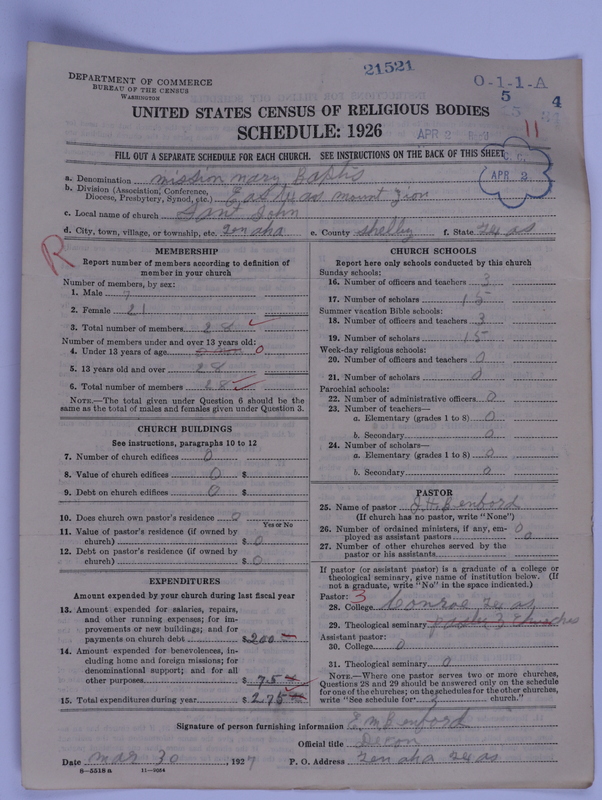 21521
DEPARTMENT OF COMMERCE
BUREAU OF THE CENSUS
WASHINGTON
O-1-1-A
5 4
UNITED STATES CENSUS OF RELIGIOUS BODIES
SCHEDULE: 1926
APR 2
11
FILL OUT A SEPARATE SCHEDULE FOR EACH CHURCH. SEE INSTRUCTIONS ON THE BACK OF THIS SHEET
APR 2
a. Denomination mission nary Baphs
b. Division (Association, Conference,
Diocese, Presbytery, Synod, etc.) mount Zion
c. Local name of church Sant John
d. City, town, village, or township, etc. Tenaha e. County Shelby f. State Texas
R
MEMBERSHIP
Report number of members according to definition of
member in your church
Number of members, by sex:
1. Male 7
2. Female 21
3. Total number of members 28
Number of members under and over 13 years old:
4. Under 13 years of age 0
5. 13 years old and over 28
6. Total number of members 28
NOTE.—The total given under Question 6 should be the
same as the total of males and females given under Question 3.
CHURCH BUILDINGS
See instructions, paragraphs 10 to 12
7. Number of church edifices 0
8. Value of church edifices 0 $
9. Debt on church edifices 0 $
10. Does church own pastor's residence 0
Yes or No
11. Value of pastor's residence (if owned by
church) $ 0
12. Debt on pastor's residence (if owned by
church) $ 0
EXPENDITURES
Amount expended by your church during last fiscal year
13. Amount expended for salaries, repairs,
and other running expenses; for im-
provements or new buildings; and for
payments on church debt $200
14. Amount expended for benevolences, in-
cluding home and foreign missions; for
denominational support; and for all
other purposes $ 75
15. Total expenditures during year $ 275
CHURCH SCHOOLS
Report here only schools conducted by this church
Sunday schools:
16. Number of officers and teachers 3
17. Number of scholars 15
Summer vacation Bible schools:
18. Number of officers and teachers 3
19. Number of scholars 15
Week-day religious schools:
20. Number of officers and teachers 0
21. Number of scholars 0
Parochial schools:
22. Number of administrative officers 0
23. Number of teachers—
a. Elementary (grades 1 to 8) 0
b. Secondary 0
24. Number of scholars—
a. Elementary (grades 1 to 8) 0
b. Secondary 0
PASTOR
25. Name of pastor J. H. Benford
(If church has no pastor, write "None")
26. Number of ordained ministers, if any, em-
ployed as assistant pastors 0
27. Number of other churches served by the
pastor or his assistants 0
If pastor (or assistant pastor) is a graduate of a college or
theological seminary, give name of institution below. (If
not a graduate, write "No" in the space indicated.)
Pastor: 3
28. College Conroe Texas
29. Theological seminary
Assistant pastor:
30. College 0
31. Theological seminary 0
NOTE.—Where one pastor serves two or more churches,
Questions 28 and 29 should be answered only on the schedule
for one of the churches; on the schedules for the other churches,
write "See schedule for church."
Signature of person furnishing information E M Benford
Official title Decon
Date Mar 30, 1927 P. O. Address Tenaha Texas
8-5518 a 11-9084